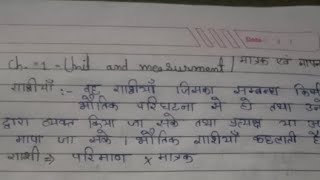 Date
Ch. -1 - Unit and measurment / मात्रक एवं मापन
राशीयाँ :- वह राशीयाँ जिसका सम्बन्ध किसी
भौतिक परिघटना से हो तथा उसे
द्वारा व्यक्त किया जा सके तथा प्रत्यक्ष या अ
मापा जा सके । भौतिक राशीयाँ कहलाती है
राशी ⇒ परिमाण x मात्रक